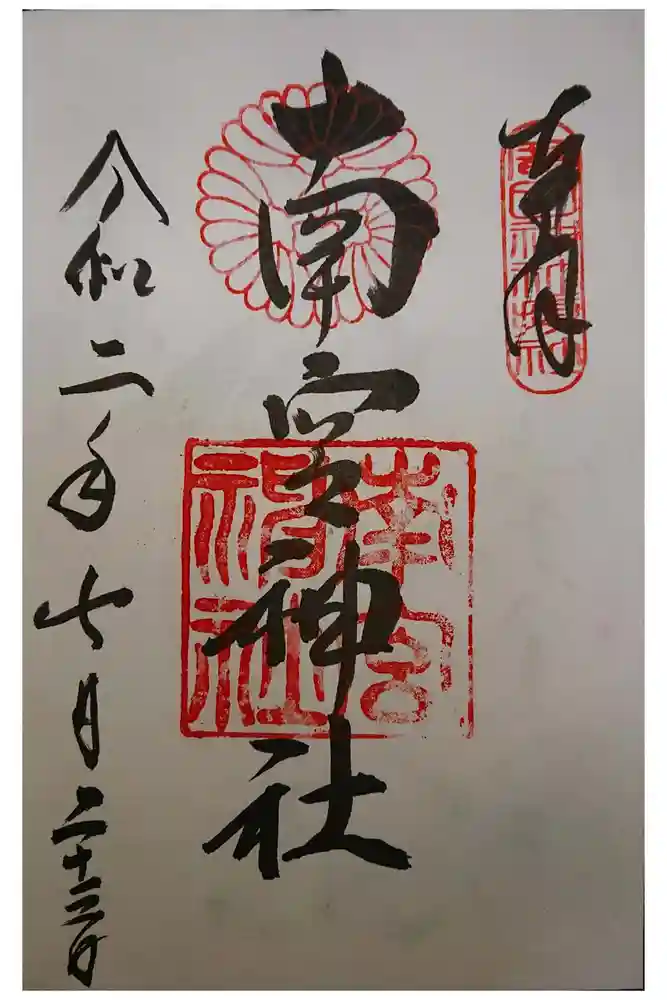 奉拝
南宮神社
南宮
神社
令和二年七月二十三日